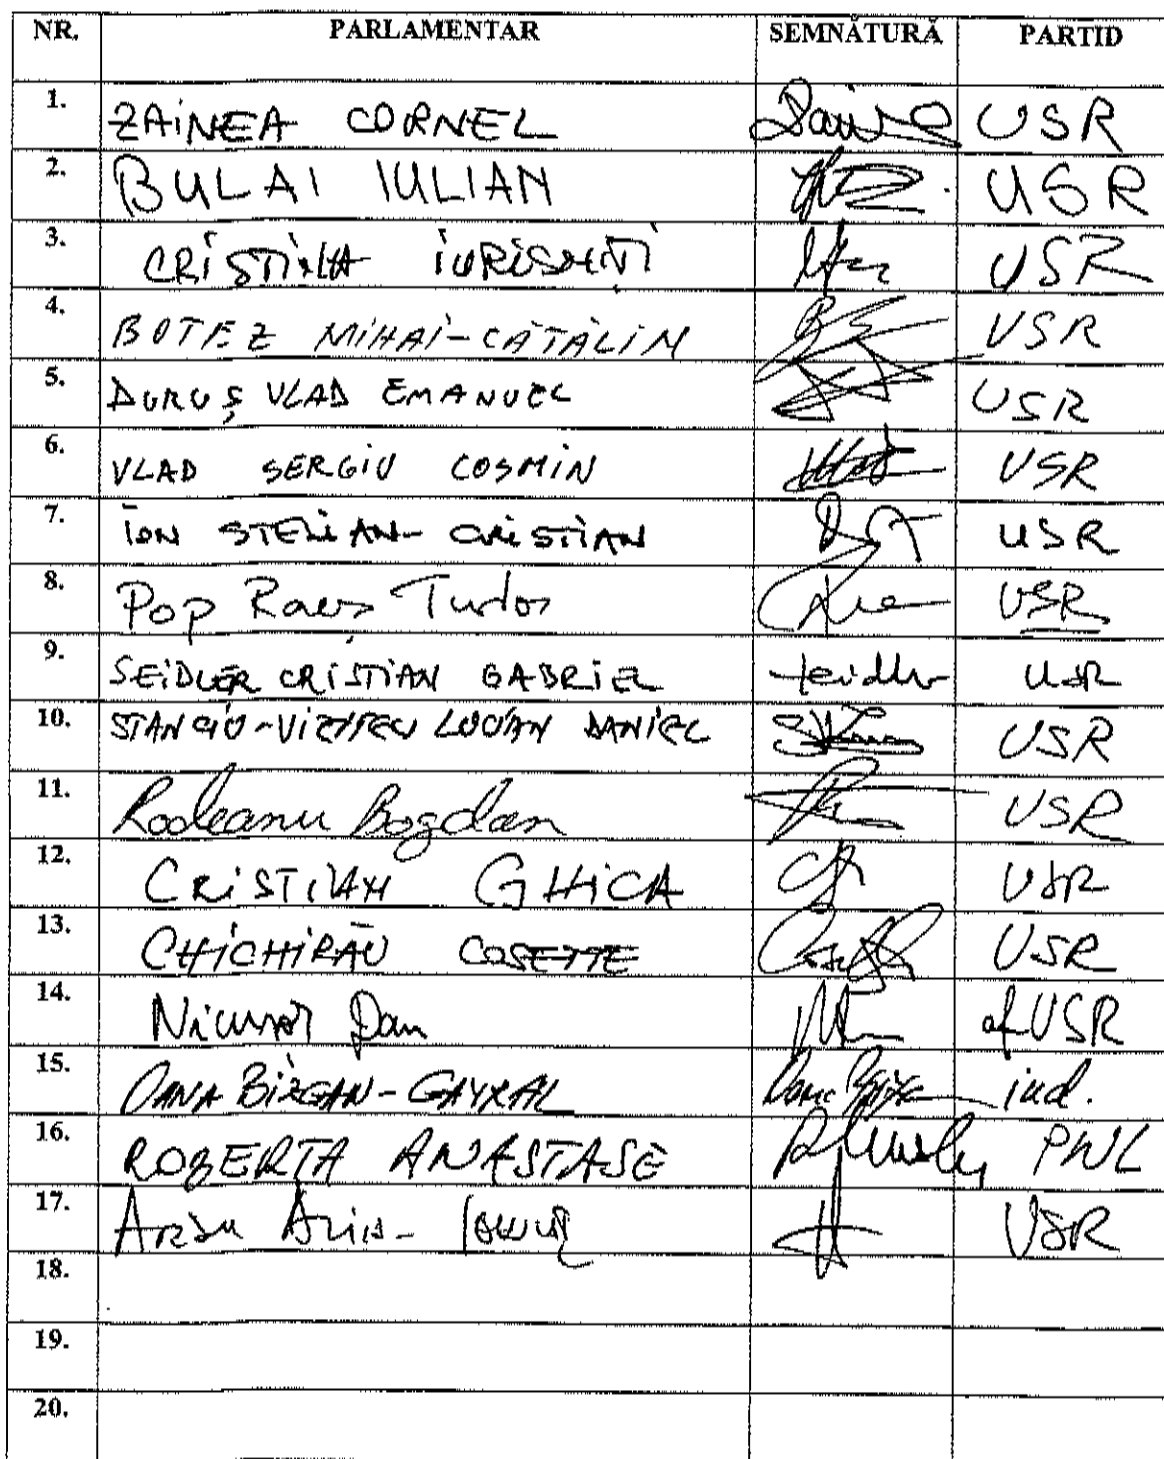 NR. PARLAMENTAR SEMNĂTURĂ PARTID
1. ZAINEA CORNEL USR
2. BULAI IULIAN USR
3. CRISTINA IURISNIȚI USR
4. BOTEZ MIHAI-CĂTĂLIN USR
5. DURUȘ VLAD EMANUEL USR
6. VLAD SERGIU COSMIN USR
7. ION STELIAN-CRISTIAN USR
8. Pop Rareș Tudor USR
9. SEIDLER CRISTIAN GABRIEL USR
10. STANCIU-VIZITEU LUCIAN DANIEL USR
11. Rodeanu Bogdan USR
12. CRISTIAN GHICA USR
13. CHICHIRĂU COSETTE USR
14. Nicușor Dan af USR
15. OANA BÎZGAN-GAYRAL ind.
16. ROBERTA ANASTASE PNL
17. USR
18.
19.
20.